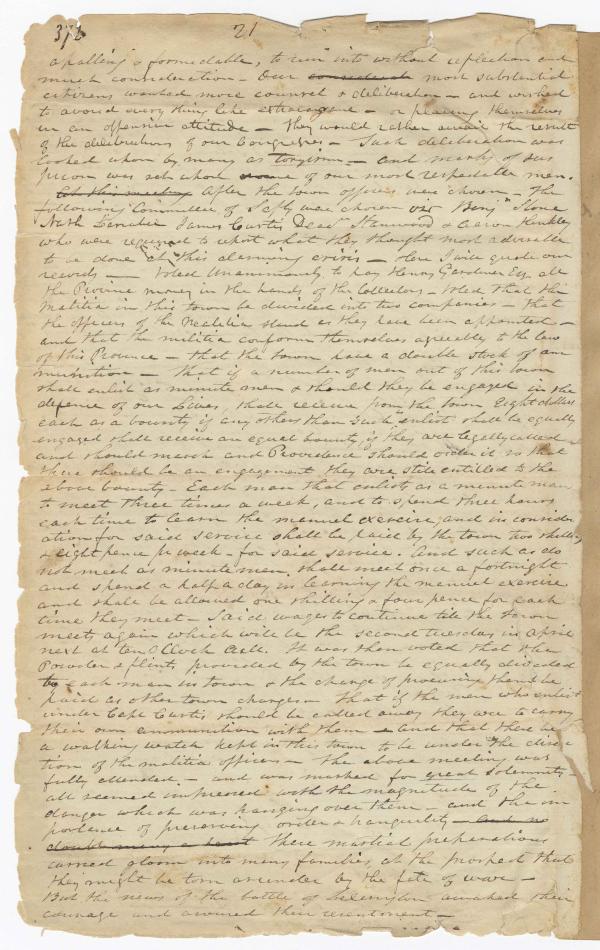 372 21
apalling & formidable, to run into without reflection and
much consideration - Our most substantial
citizens wanted more counsel & deliberation - and wished
to avoid every thing like extravagance - or placing themselves
in an offensive attitude - they would rather await the result
of the deliberations of our Congresses - Such deliberation was
looked upon by many as toryism - and many of our
was some of our most respectable men.
At this meeting After the town officers were chosen - the
following Committee of Safty were chosen viz Benj Stone
Nath Larrabee James Curtis Dean Stanwood & Aaron Hinkley
who were required to report what they thought most adviseable
to be done at this alarming crisis - Here I will quote our
records - Voted Unanimously to pay Henry Gardner Esq all
the Province money in the hands of the Collectors - Voted that the
Malitia in this town be divided into two companies - that
the officers of the Malitia stand as they have been appointed -
and that the militia conform themselves agreeably to the law
of this Province - that the town have a double stock of am
munition - that if a number of men out of this town
shall enlist as minute men & should they be engaged in the
defence of our Lives, shall receive from the town Eight dollars
each as a bounty if any others than such enlist shall be equally
engaged shall receive an equal bounty, if they are legally called
and should march and Providence should order it so that
there should be an engagement they are still entitled to the
above bounty - Each man that enlists as a minute man
to meet three times a week, and to spend three hours
each time to learn the manuel exercise, and in consider
ation for said service shall be paid by the town two shilling
& eight pence pr week - for said service. And such as do
not meet as minute men shall meet once a fortnight
and spend a half a day in learning the manuel exercise
and shall be allowed one shilling & four pence for each
time they meet - Said wages to continue till the town
meets again which will be the second tuesday in april
next at ten OClock A.M. It was then voted that the
Powder & flints provided by the town be equally divided
to each man in town & the charge of procuring them be
paid as other town charges - that if the men who enlist
under Capt Curtis should be called away they are to carry
their own ammunition with them - and that there be
a walking watch kept in this town to be under the direc
tion of the malitia officers - the above meeting was
fully attended - and was marked for great solemnity
all seemed impressed with the magnitude of the
danger which was hanging over them - and the im
portance of preserving order & tranquility - and no
doubt many a heart these martial preparations
carried gloom into many families at the prospect that
they might be torn asunder by the fate of war -
But the news of the battle of Lexington awaked their
courage and aroused their resentment -